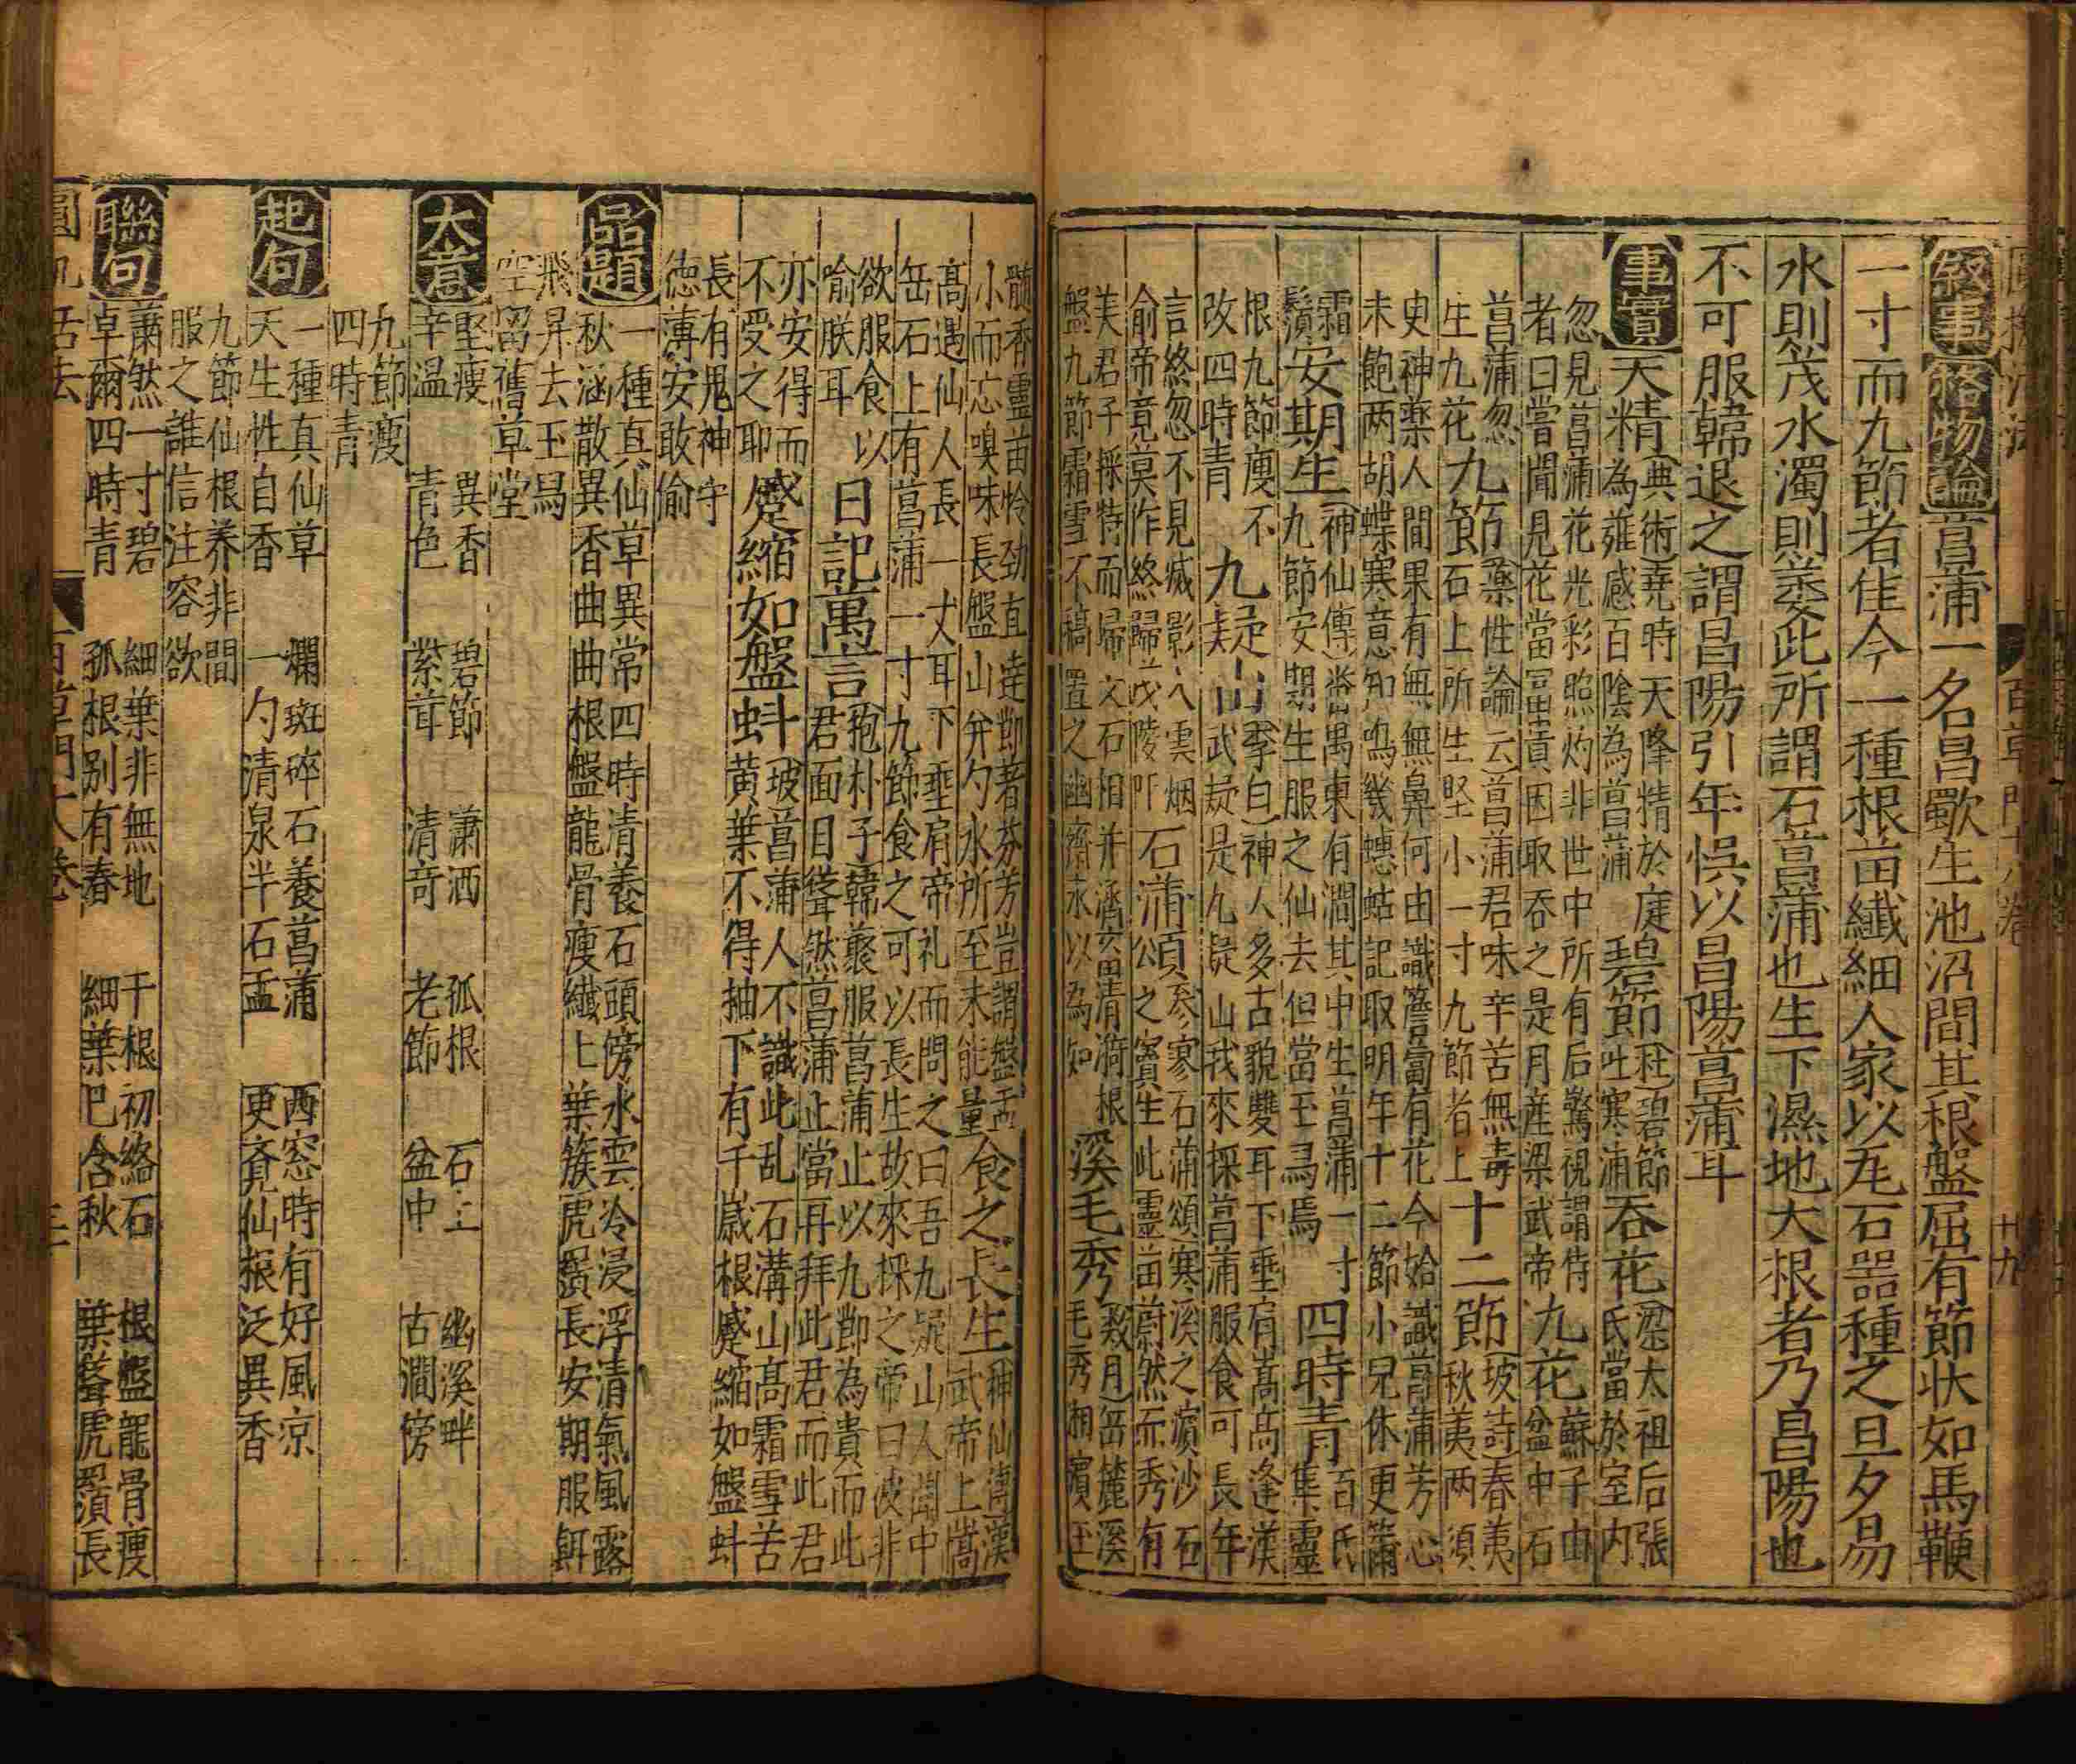 叙事 格物論 菖蒲一名昌歜生池沼間其根盤屈有節状如馬鞭
一寸而九節者佳今一種根苗纖細人家以瓦石噐種之旦夕易
水則茂水濁則萎此所謂石菖蒲也生下濕地大根者乃昌陽也
不可服韓退之謂昌陽引年悮以昌陽菖蒲耳
事實 天精
(典術)堯時天降精於庭
為薤感百隂為菖蒲
碧節
(杜)碧節
吐寒蒲
吞花
(梁)太祖后張
氏當於室内
忽見菖蒲花光彩照灼非世中所有后驚視謂侍
者曰嘗聞見花當冨貴因取吞之是月産梁武帝
九花
蘇子由
盆中石
菖蒲忽
生九花
九節
(藥性論云)菖蒲君味辛苦無毒
石上所生堅小一寸九節者上
十二節
(坡詩)春荑
秋荑两須
史神藥人間果有無無鼻何由識簷蔔有花今始識菖蒲芳心
未飽两胡蝶寒意知鳴幾蟪蛄記取明年十二節小兒休更籋
霜
鬚
安期生
(神仙傳)番禺東有澗其中生菖蒲一寸
九節安期生服之仙去但留玉舄焉
四時青
百氏
集靈
根九節瘦不
改四時青
九疑山
(李白)神人多古貌雙耳下垂肩嵩髙逢漢
武疑是九疑山我來採菖蒲服食可長年
言終忽不見㓕影入雲烟
喻帝竟莫作終歸茂陵阡
石蒲頌
參寥石蒲頌寒溪之濵沙石
公之寳生此靈苗蔚然而秀有
美君子採特而歸文石相并濟清漪根
盤九節霜雪不稿置之幽齋永以為
溪毛秀
缶簏溪
毛秀湘濵玉
髄香靈苗怜勁直逹卽著芬芳豈謂盤盂
小而忘嗅味長盤山弁勺水所至未能量
食之長生
神仙傳漢
武帝上嵩
髙遇仙人長一丈耳下垂肩帝礼而問之曰吾九疑山人聞中
岳石上有菖蒲一寸九節食之可以長生故來採之帝曰彼非
欲服食以
喻朕耳
日記萬言
(抱朴子)韓衆服菖蒲止以九卽為貴而此
君面目聳然菖蒲止當再拜此君而此君
亦安得而
不受之耶
蹙縮如盤蚪
坡菖蒲人不識此乱石溝山髙霜雪苦
黄葉不得抽下有千嵗根蹙縮如盤蚪
長有鬼神守
德薄安敢偷
品題
一種真仙草異常四時清養石頭傍水雲冷浸浮清氣風露
秋涵散異香曲曲根盤龍骨瘦纖上葉簇虎鬚長安期服餌
飛昇去玉舄
空留舊草堂
大意
堅瘦 異香 碧節 蕭洒 孤根 石上 幽溪畔
辛温 青色 紫茸 清奇 老節 盆中 古澗傍
九節瘦
四時青
起句
一種真仙草 爛斑碎石養菖蒲 西窓時有好風凉
天生性自香 一勺清泉半石盂 更覔仙根泛異香
九節仙根养非間
服之誰信注容欲
聯句
蕭然一寸碧 細葉非無地 千根初絡石 根盤龍骨瘦
卓爾四時青 孤根别有春 細葉巴含秋 葉聳虎鬚長